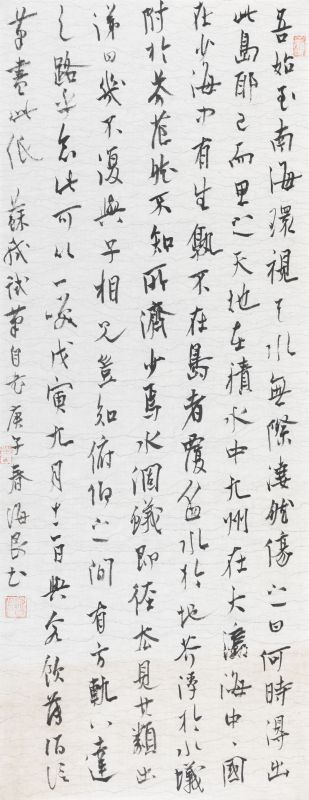 吾始至南海環視天水無際淒然傷之曰何時得出
此島耶已而思之天地在積水中九州在大瀛海中、國
在少海中有生孰不在島者覆盆水於地芥浮於水蟻
附於芥茫然不知所濟少焉水涸蟻即徑去見其類出
涕曰幾不復與子相見豈知俯仰之間有方軌八達
之路乎念此可以一笑戊寅九月十二日與客飲薄酒信
筆書此紙 蘇軾試筆自書 庚子春海書